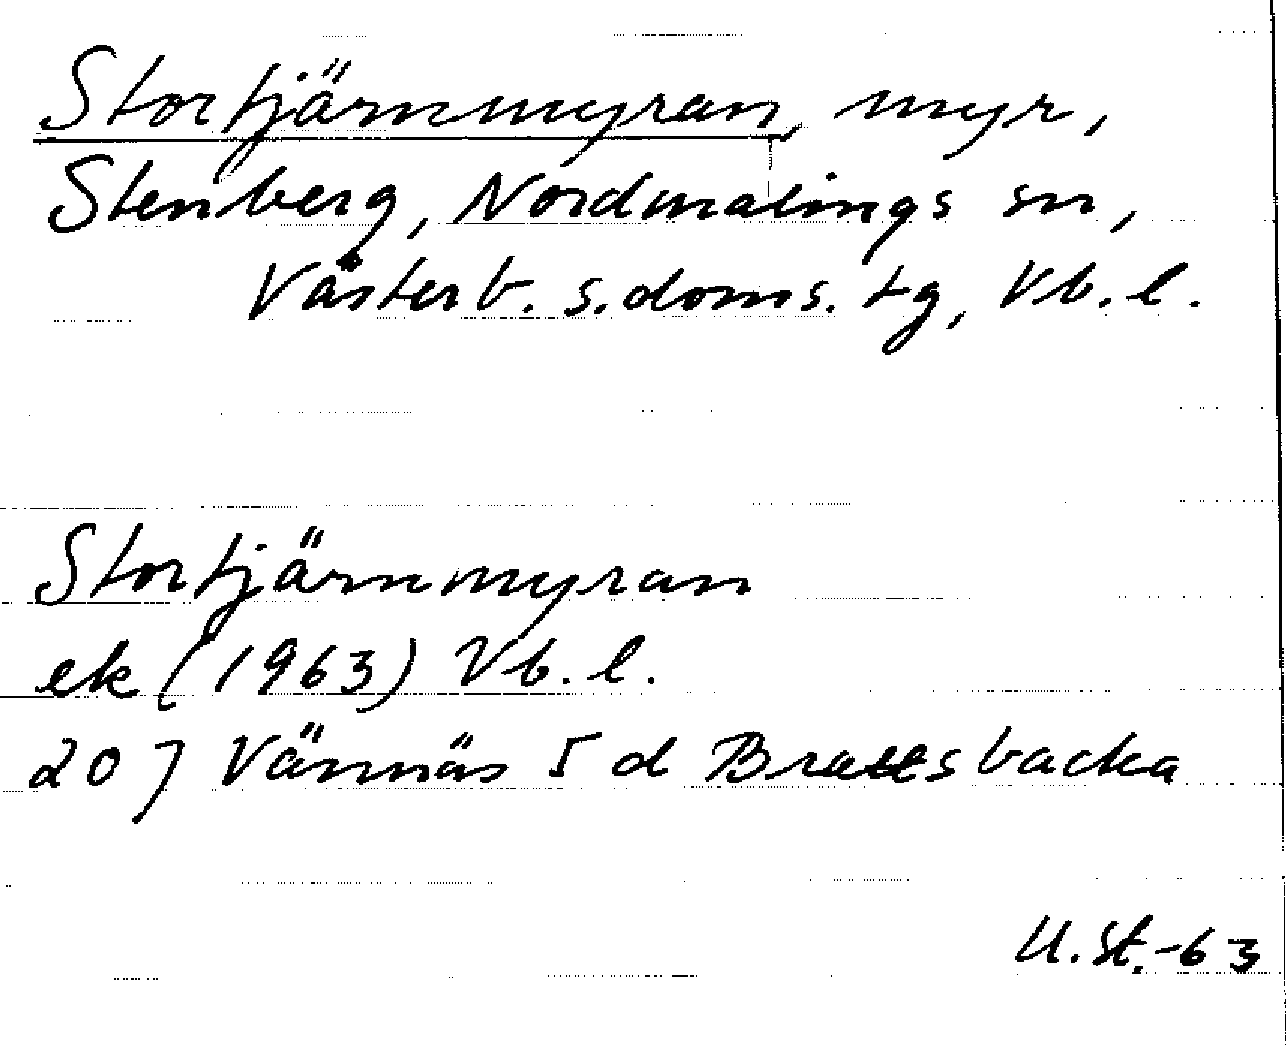 Stortjärnmyran, myr,
Stenberg, Nordmalings sn,
Västerb. s. doms. tg, Vb. l.
Stortjärnmyran
ek (1963) Vb. l.
20 J Vännäs 5 d Brattsbacka
U. St. -63